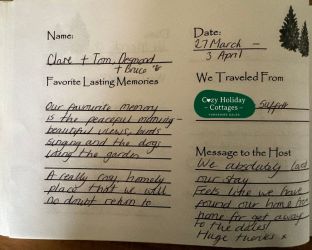 Name:
Clare + Tom, Desmond
+ Bruce
Favorite Lasting Memories
Our favourite memory
is the peaceful morning -
beautiful views, birds
singing and the dogs
the garden
A really cosy, homely
place that we will
no doubt return to
Date:
27 March -
3 April
We Traveled From
Cozy Holiday
- Cottages -
YORKSHIRE DALES
Suffolk
Message to the Host
We absolutely
our stay
Feels like we have
found our home from
home for get away
to the dales!
Huge thanks x